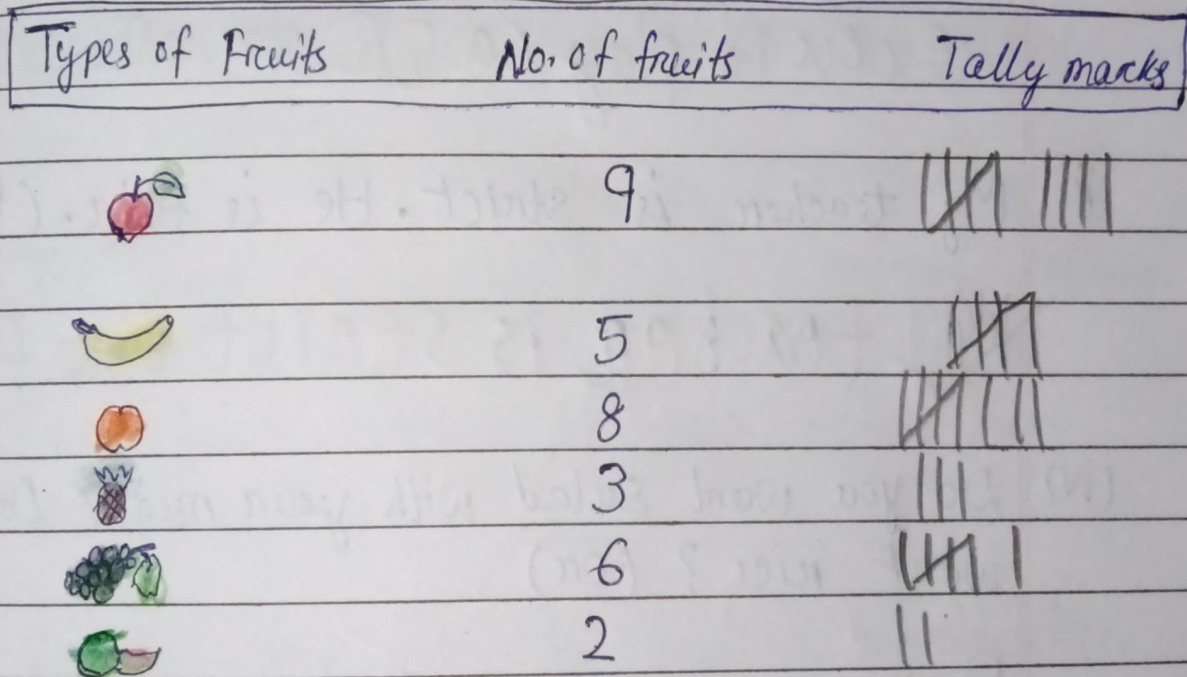 Types of Fruits No. of fruits Tally marks
9
5
8
3
6
2